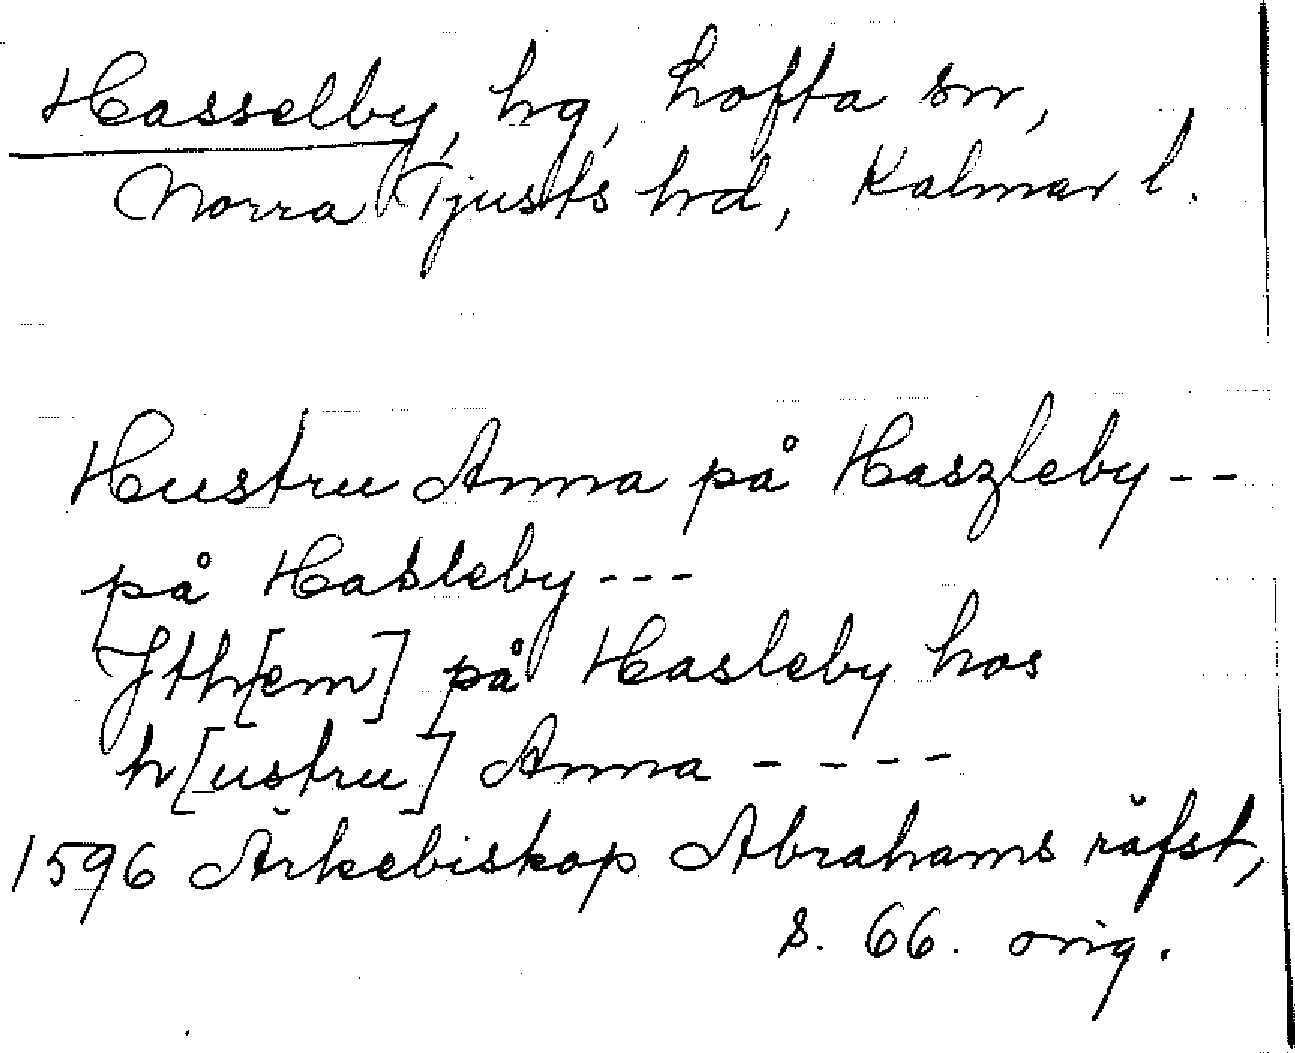 Hasselby, hg, Lofta sn,
Norra Tjusts hrd, Kalmar l.
Hustru Anna på Haszleby --
på Hasleby ---
Jth[em] på Hasleby hos
h[ustru] Anna ----
1596 Ärkebiskop Abrahams räfst,
s. 66. orig.